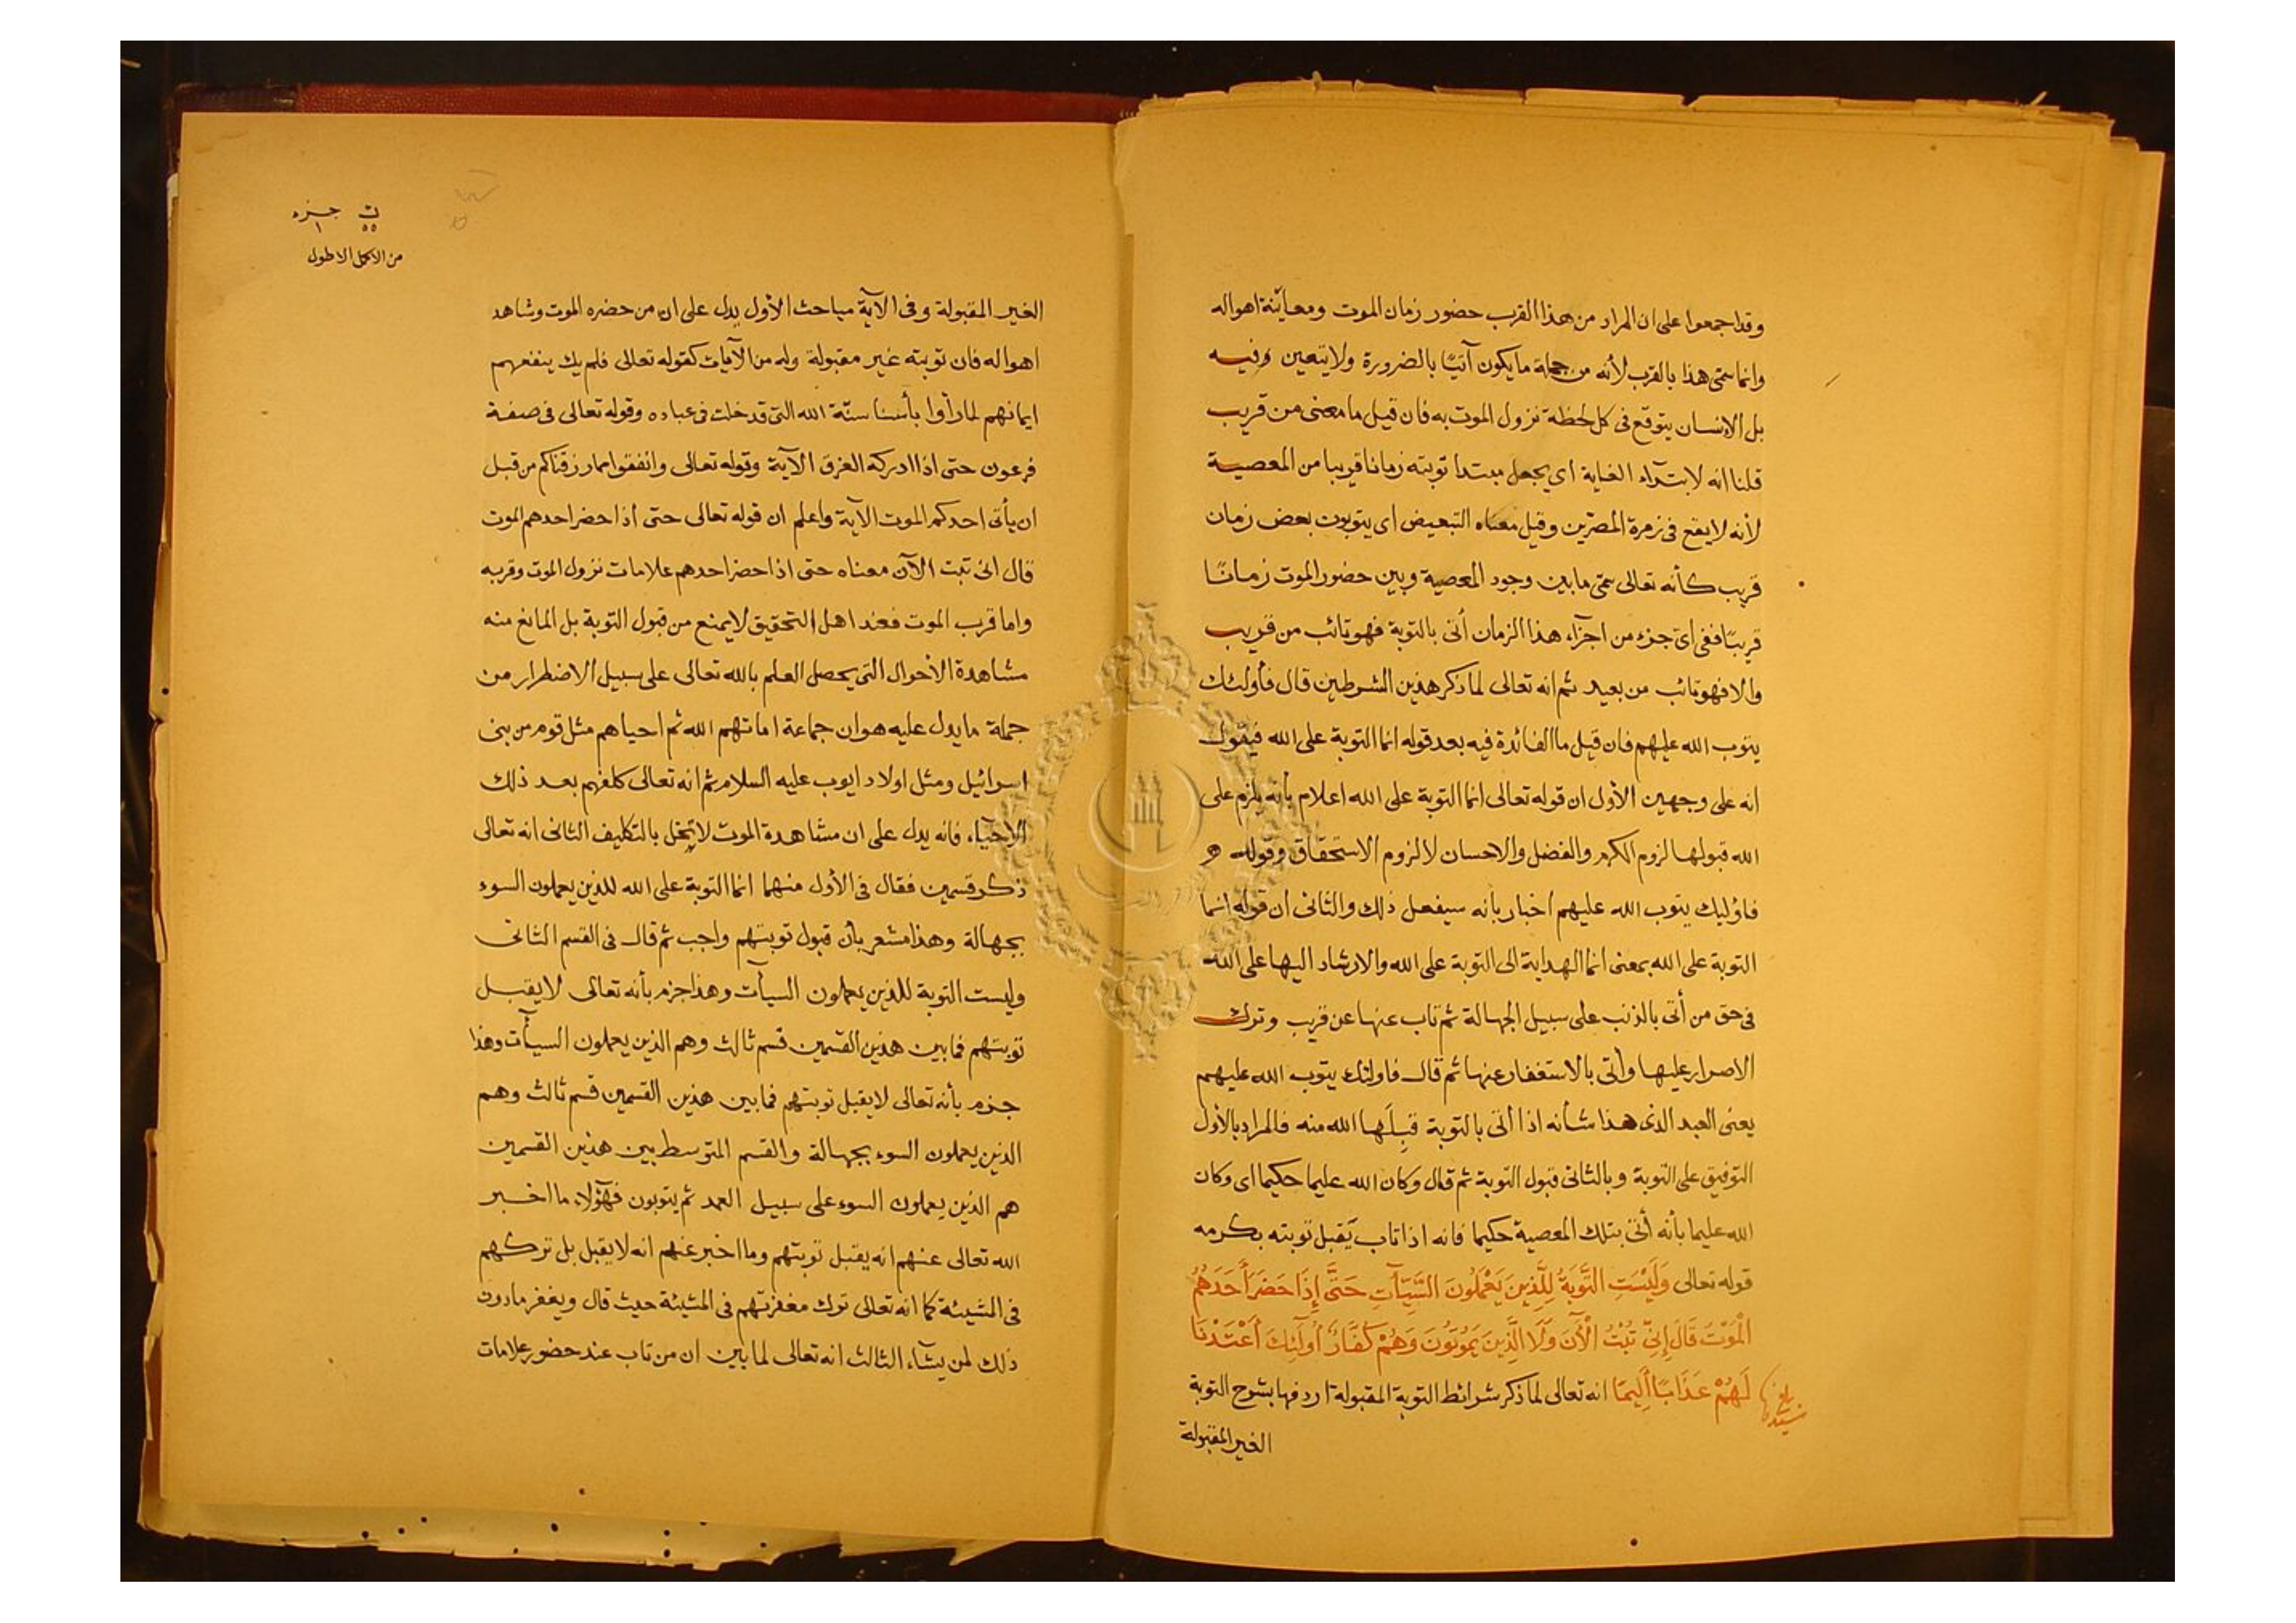 وقد اجمعوا على ان المراد من هذا القرب حضور زمان الموت ومعاينة اهواله
وانما سمى هذا بالقرب لأنه من جملة ما يكون آتيًا بالضرورة ولا يتعين وفيه
بل الانسان يتوقع فى كل لحظة نزول الموت به فان قيل ما معنى من قريب
قلنا انه لابتدآء الغاية اى يجعل مبتدا توبته زمانا قريبا من المعصية
لأنه لا يقع فى زمرة المصرّين وقيل معناه التبعيض اى يتوبون بعض زمان
قريب كأنه تعالى سمّى ما بين وجود المعصية وبين حضور الموت زمانًا
قريبًا ففى اىّ جزء من اجزآء هذا الزمان أتى بالتوبة فهو تائب من قريب
والا فهو تائب من بعيد ثم انه تعالى لما ذكر هذين الشرطين قال فأولئك
يتوب الله عليهم فان قيل ما الفائدة فيه بعد قوله انما التوبة على الله فيقول
انه على وجهين الأول ان قوله تعالى انما التوبة على الله اعلام بأنه يلزم على
الله قبولها لزوم الكرم والفضل والاحسان لا لزوم الاستحقاق وقوله
فاوليك يتوب الله عليهم اخبار بأنه سيفعل ذلك والثانى ان قوله انما
التوبة على الله بمعنى انما الهداية الى التوبة على الله والارشاد اليها على الله
فى حق من أتى بالذنب على سبيل الجهالة ثم تاب عنها عن قريب وترك
الاصرار عليها وأتى بالاستغفار عنها ثم قال فاولئك يتوب الله عليهم
يعنى العبد الذى هذا شأنه اذا أتى بالتوبة قبِلَها الله منه فالمراد بالأول
التوفيق على التوبة وبالثانى قبول التوبة ثم قال وكان الله عليما حكيما اى وكان
الله عليما بأنه أتى بتلك المعصية حكيما فانه اذا تاب يَقبل توبته بكرمه
قوله تعالى وَلَيْسَتِ التَّوبَةُ لِلَّذِينَ يَعْمَلُونَ السَّيِّآتِ حَتَّى إِذَا حَضَرَ أَحَدَهُمُ
الْمَوْتُ قَالَ إِنِّى تُبْتُ الْآنَ وَلَا الَّذِينَ يَمُوتُونَ وَهُمْ كُفَّارٌ أُولَئِكَ أَعْتَدْنَا
لَهُمْ عَذَابًا أَلِيمًا انه تعالى لما ذكر شرائط التوبة المقبولة اردفها بشرح التوبة
الغير المقبولة
ت جزء
٥٥ ١
من الاكمل الاطول
الغير المقبولة وفى الآية مباحث الأول يدل على ان من حضره الموت وشاهد
اهواله فان توبته غير مقبولة وله من الآيات كقوله تعالى فلم يك ينفعهم
ايمانهم لما رأوا بأسنا سنّة الله التى قد خلت فى عباده وقوله تعالى فى صفة
فرعون حتى اذا ادركه الغرق الآية وقوله تعالى وانفقوا مما رزقناكم من قبل
ان يأتى احدكم الموت الآية واعلم ان قوله تعالى حتى اذا حضر احدهم الموت
قال انى تبت الآن معناه حتى اذا حضر احدهم علامات نزول الموت وقربه
واما قرب الموت فعند اهل التحقيق لا يمنع من قبول التوبة بل المانع منه
مشاهدة الأحوال التى يحصل العلم بالله تعالى على سبيل الاضطرار من
جملة ما يدل عليه هو ان جماعة اماتهم الله ثم احياهم مثل قوم من بنى
اسرائيل ومثل اولاد ايوب عليه السلام ثم انه تعالى كلفهم بعد ذلك
الاحيآء فانه يدل على ان مشاهدة الموت لا تخل بالتكليف الثانى انه تعالى
ذكر قسمين فقال فى الأول منهما انما التوبة على الله للذين يعملون السوء
بجهالة وهذا مشعر بأن قبول توبتهم واجب ثم قال فى القسم الثانى
وليست التوبة للذين يعملون السيآت وهذا جزم بأنه تعالى لا يقبل
توبتهم فما بين هذين القسمين قسم ثالث وهم الذين يعملون السيآت وهذا
جزم بأنه تعالى لا يقبل توبتهم فما بين هذين القسمين قسم ثالث وهم
الذين يعملون السوء بجهالة والقسم المتوسط بين هذين القسمين
هم الذين يعملون السوء على سبيل العمد ثم يتوبون فهؤلاء ما اخبر
الله تعالى عنهم انه يقبل توبتهم وما اخبر عنهم انه لا يقبل بل تركهم
فى المشيئة كما انه تعالى ترك مغفرتهم فى المشيئة حيث قال ويغفر ما دون
ذلك لمن يشآء الثالث انه تعالى لما بين ان من تاب عند حضور علامات